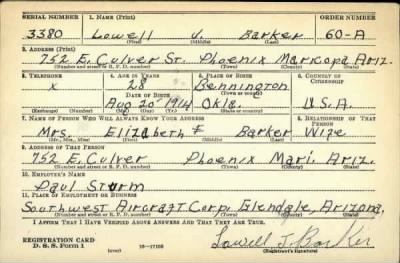 SERIAL NUMBER 1. NAME (Print) ORDER NUMBER
3380 Lowell J. Barker 60-A
(First) (Middle) (Last)
2. ADDRESS (Print)
752 E. Culver St. Phoenix Maricopa Ariz.
(Number and street or R. F. D. number) (Town) (County) (State)
3. TELEPHONE 4. AGE IN YEARS 5. PLACE OF BIRTH 6. COUNTRY OF CITIZENSHIP
x 28 Bennington
DATE OF BIRTH (Town or county)
Aug 20 1914 Okla. U.S.A.
(Exchange) (Number) (Mo.) (Day) (Yr.) (State or country)
7. NAME OF PERSON WHO WILL ALWAYS KNOW YOUR ADDRESS 8. RELATIONSHIP OF THAT PERSON
Mrs. Elizabeth F Barker Wife
(Mr., Mrs., Miss) (First) (Middle) (Last)
9. ADDRESS OF THAT PERSON
752 E. Culver Phoenix Mari. Ariz.
(Number and street or R. F. D. number) (Town) (County) (State)
10. EMPLOYER'S NAME
Paul Sturm
11. PLACE OF EMPLOYMENT OR BUSINESS
Southwest Aircraft Corp. Glendale, Arizona.
(Number and street or R. F. D. number) (Town) (County) (State)
I AFFIRM THAT I HAVE VERIFIED ABOVE ANSWERS AND THAT THEY ARE TRUE.
REGISTRATION CARD
D. S. S. Form 1 (over) 16-17105 Lowell J. Barker
(Registrant's signature)